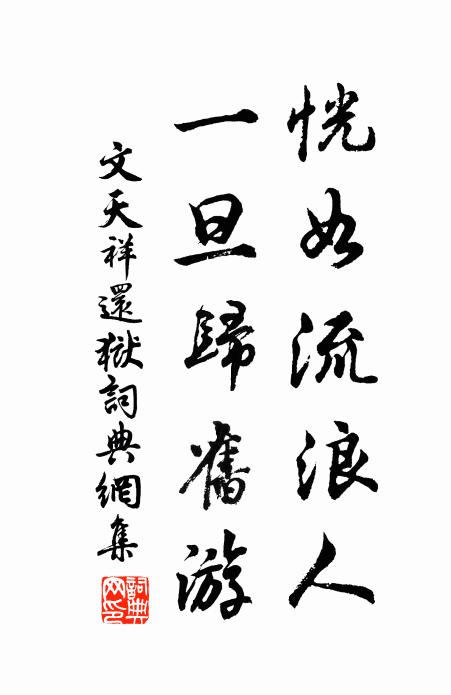 恍如流浪人
一旦歸舊游
文天祥還獄詞典網集
詞典网印